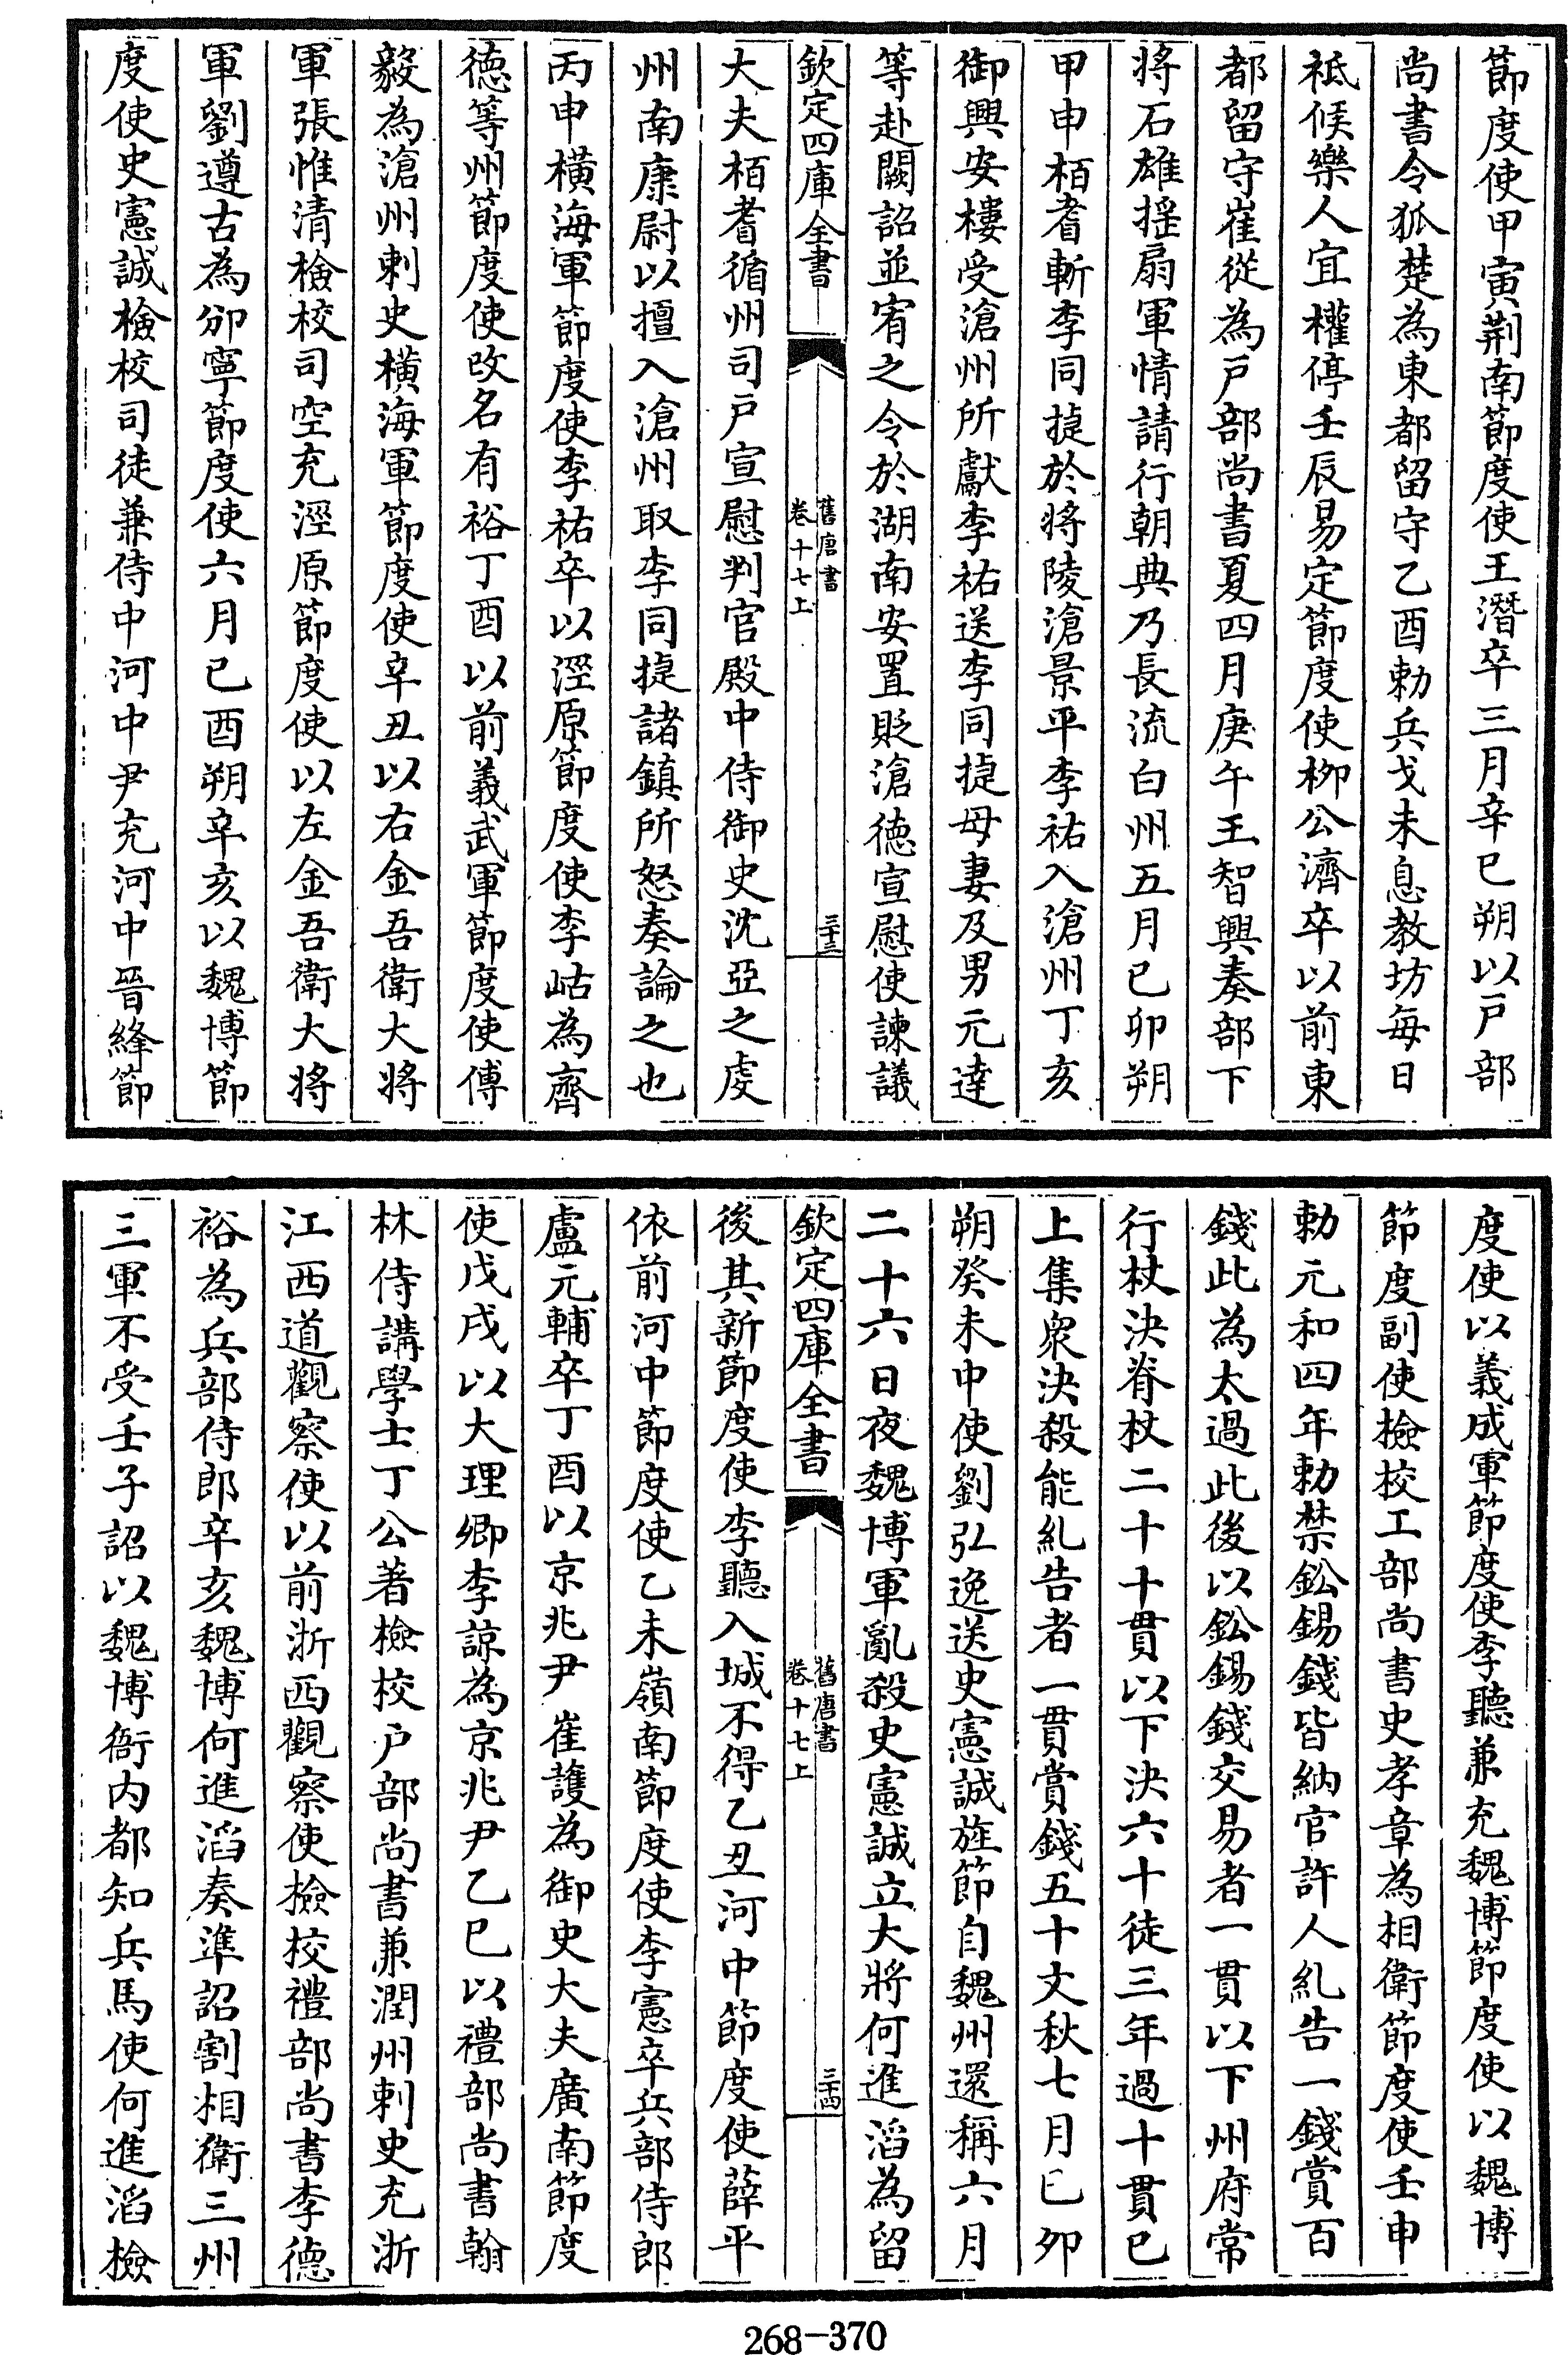 節度使甲寅荆南節度使王潛卒三月辛巳朔以戸部
尚書令狐楚為東都留守乙酉勅兵戈未息教坊每日
祗候樂人宜權停壬辰易定節度使柳公濟卒以前東
都留守崔從為戸部尚書夏四月庚午王智興奏部下
将石雄揺扇軍情請行朝典乃長流白州五月已卯朔
甲申栢耆斬李同捷於将陵滄景平李祐入滄州丁亥
御興安樓受滄州所獻李祐送李同捷母妻及男元逹
等赴闕詔並宥之令於湖南安置貶滄徳宣慰使諫議
欽定四庫全書
舊唐書
卷十七上
三十三
大夫栢耆循州司戸宣慰判官殿中侍御史沈亞之䖍
州南康尉以擅入滄州取李同捷諸鎮所怒奏論之也
丙申橫海軍節度使李祐卒以涇原節度使李岵為齊
徳等州節度使改名有裕丁酉以前義武軍節度使傅
毅為滄州刺史橫海軍節度使辛丑以右金吾衛大将
軍張惟清檢校司空充涇原節度使以左金吾衛大将
軍劉遵古為邠寧節度使六月已酉朔辛亥以魏博節
度使史憲誠檢校司徒兼侍中河中尹充河中晉絳節
度使以義成軍節度使李聽兼充魏博節度使以魏博
節度副使檢校工部尚書史孝章為相衛節度使壬申
勅元和四年勅禁鈆錫錢皆納官許人糺告一錢賞百
錢此為太過此後以鈆錫錢交易者一貫以下州府常
行杖決脊杖二十十貫以下決六十徒三年過十貫已
上集衆決殺能糺告者一貫賞錢五十文秋七月已卯
朔癸未中使劉弘逸送史憲誠旌節自魏州還稱六月
二十六日夜魏博軍亂殺史憲誠立大將何進滔為留
欽定四庫全書
舊唐書
卷十七上
三十四
後其新節度使李聽入城不得乙丑河中節度使薛平
依前河中節度使乙未嶺南節度使李憲卒兵部侍郎
盧元輔卒丁酉以京兆尹崔護為御史大夫廣南節度
使戊戌以大理卿李諒為京兆尹乙巳以禮部尚書翰
林侍講學士丁公著檢校户部尚書兼潤州刺史充浙
江西道觀察使以前浙西觀察使檢校禮部尚書李德
裕為兵部侍郎辛亥魏博何進滔奏準詔割相衛三州
三軍不受壬子詔以魏博衙内都知兵馬使何進滔檢
268-370